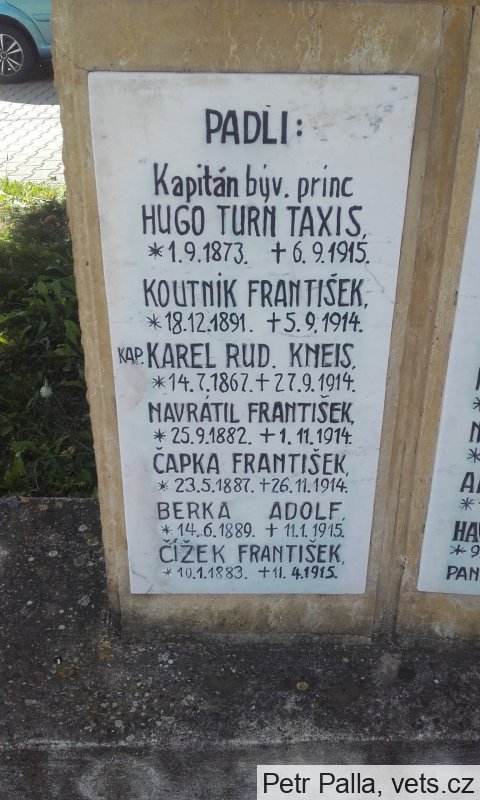 PADLI:
Kapitán býv. princ
HUGO TURN TAXIS,
* 1.9.1873. + 6.9.1915.
KOUTNÍK FRANTIŠEK,
* 18.12.1891. + 5.9.1914.
KAP. KAREL RUD. KNEIS,
* 14.7.1867. + 27.9.1914.
NAVRÁTIL FRANTIŠEK,
* 25.9.1882. + 1.11.1914.
ČAPKA FRANTIŠEK,
* 23.5.1887. + 26.11.1914.
BERKA ADOLF,
* 14.6.1889. + 11.1.1915.
ČÍŽEK FRANTIŠEK,
* 10.1.1883. + 11.4.1915.
PAN
Petr Palla, vets.cz